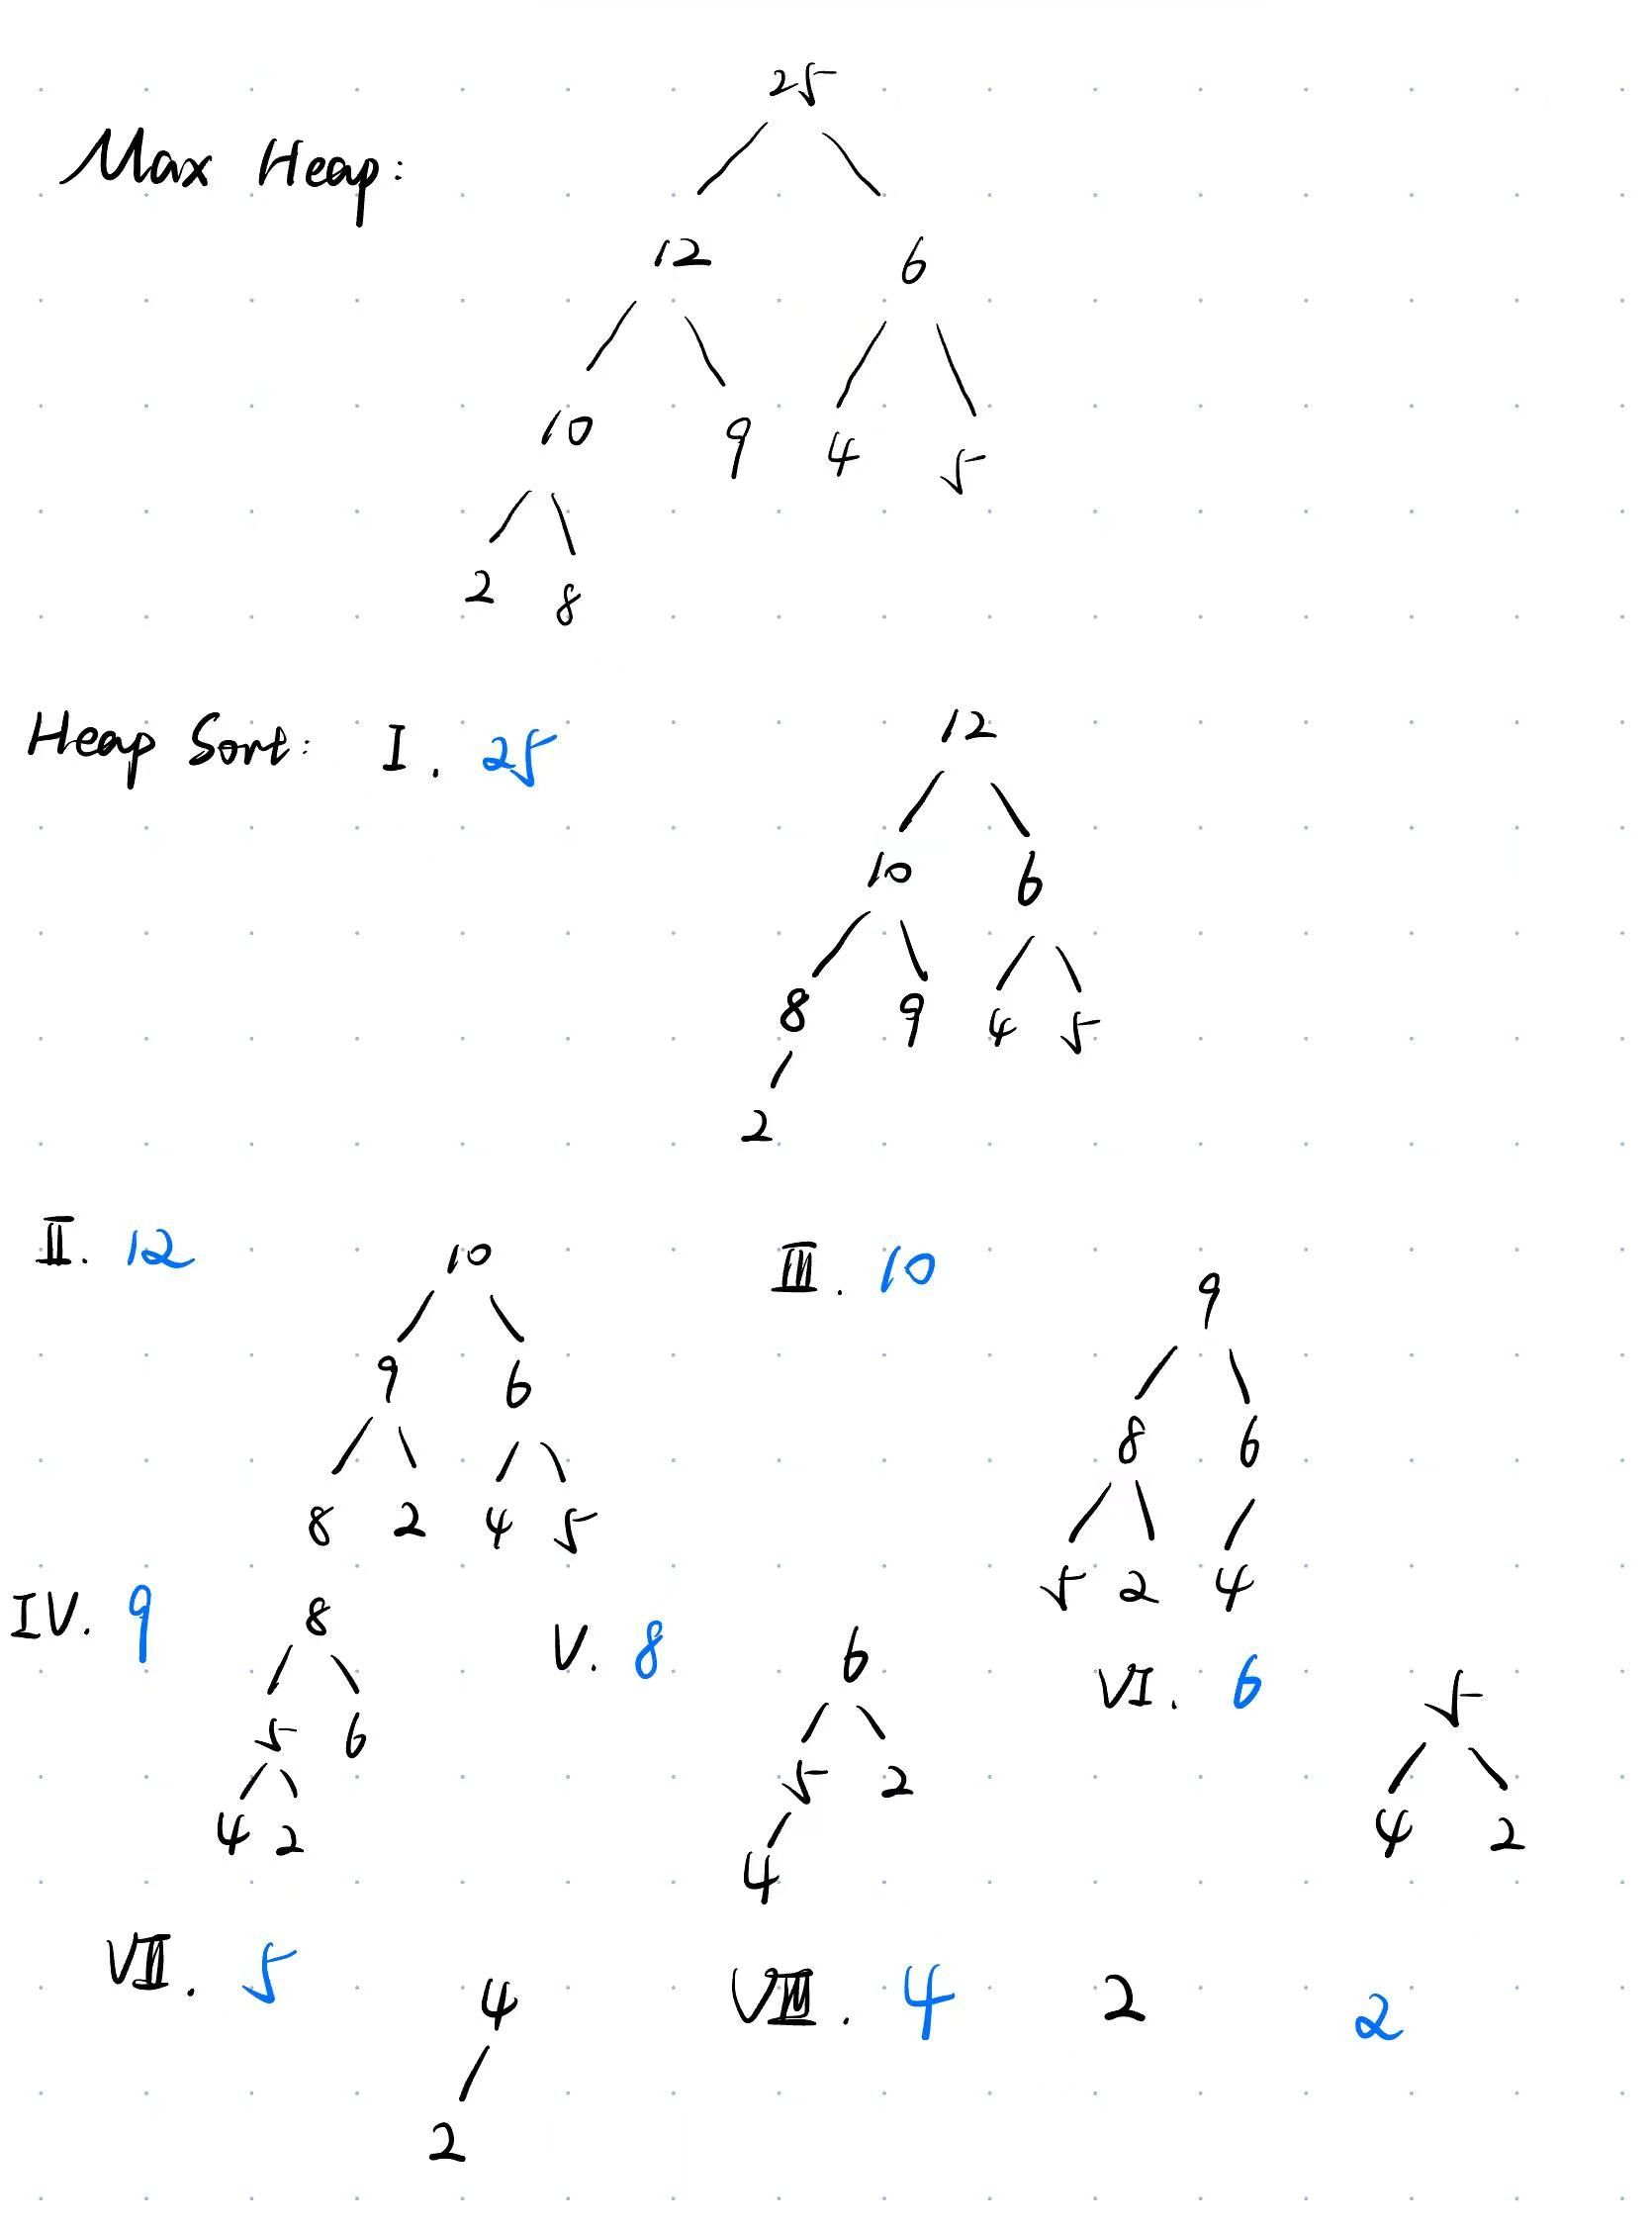 25
Max Heap:
12 6
10 9 4 5
2 8
Heap Sort: I. 25
12
10 6
8 9 4 5
2
II. 12
10
9 6
8 2 4 5
III. 10
9
8 6
5 2 4
IV. 9
8
5 6
4 2
V. 8
6
5 2
4
VI. 6
5
4 2
VII. 5
4
2
VIII. 4
2
2